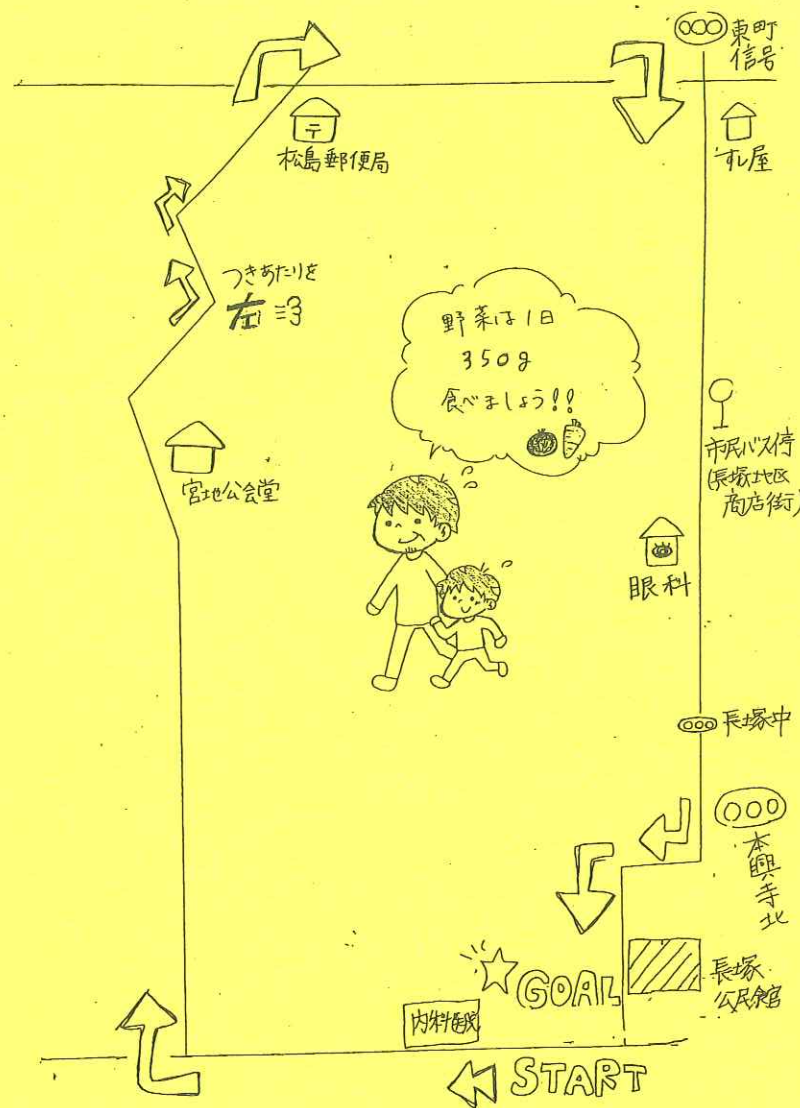 東町
信号
〒
松島郵便局
すし屋
つきあたりを
左
野菜は1日
350g
食べましょう!!
市民バス停
(長塚地区
商店街)
宮地公会堂
眼科
長塚中
本興寺北
GOAL
長塚
公民館
内科医院
START